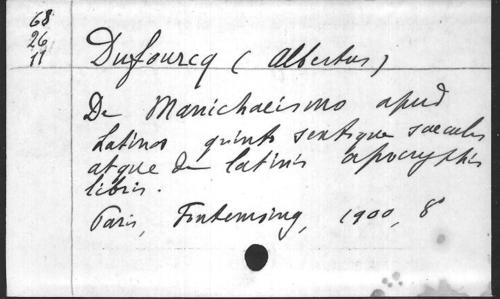 68
26
11
Dufourcq (Albertus)
De Manichaeismo apud
Latinos quinto sextoque saeculo
atque de latinis apocryphis
libris.
Paris, Fontemoing, 1900, 8°